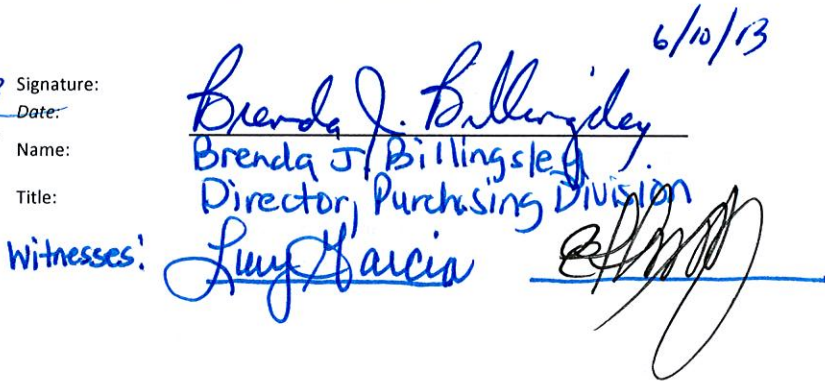 6/10/13
Signature: Brenda J. Billingsley
Date:
Name: Brenda J. Billingsley
Title: Director, Purchasing Division
Witnesses: Lucy Garcia